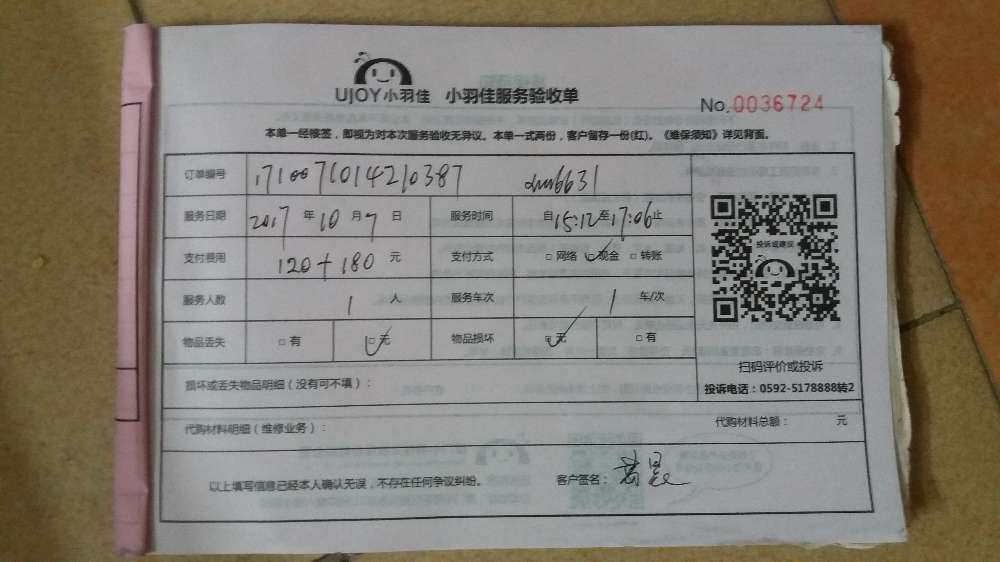 UJOY小羽佳 小羽佳服务验收单
No.0036724
本单一经接签，即视为对本次服务验收无异议。本单一式两份，客户留存一份(红)。《维保须知》详见背面。
订单编号 1710071014210387
服务日期 2017 年 10 月 7 日 服务时间 自 15:12 至 17:06 止
支付费用 120+180 元 支付方式 □ 网络 □ 现金 □ 转账
服务人数 1 人 服务车次 1 车/次
物品丢失 □ 有 □ 无 物品损坏 □ 无 □ 有
投诉或建议
扫码评价或投诉
投诉电话：0592-5178888转2
损坏或丢失物品明细（没有可不填）：
代购材料明细（维修业务）： 代购材料总额： 元
以上填写信息已经本人确认无误，不存在任何争议纠纷。 客户签名：